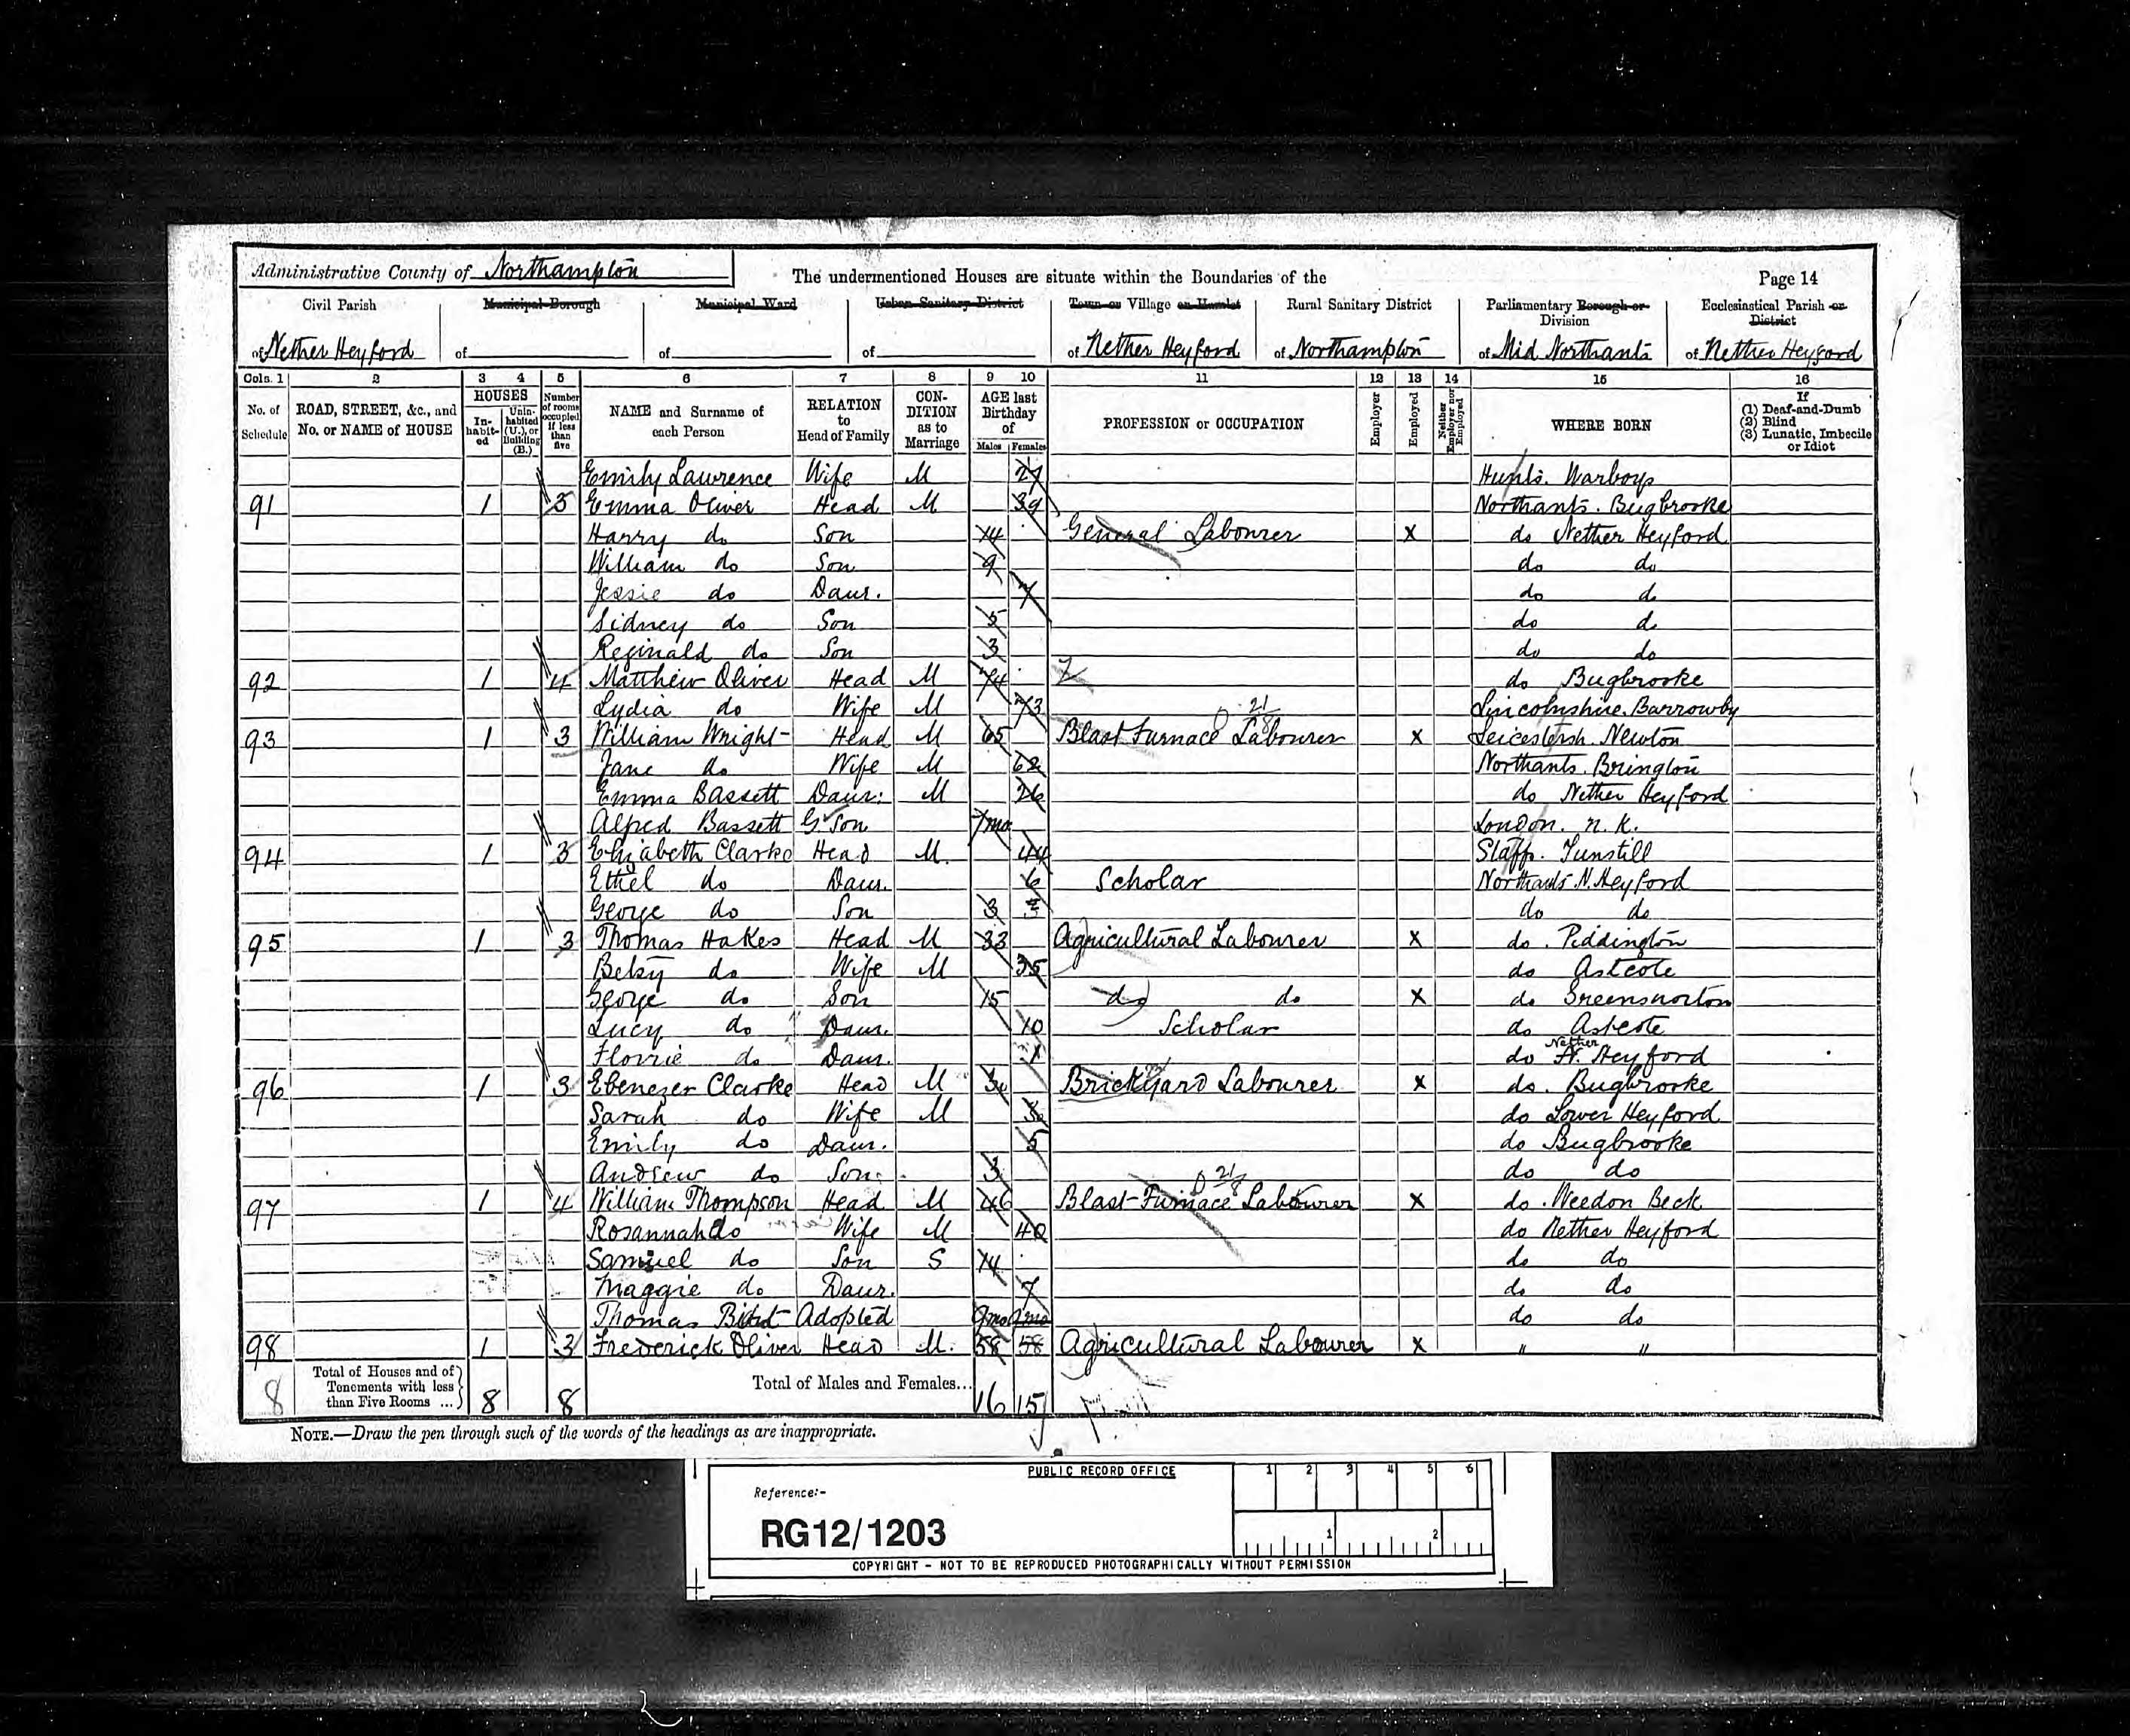 Administrative County of Northampton The undermentioned Houses are situate within the Boundaries of the Page 14
Civil Parish Municipal Borough Municipal Ward Urban Sanitary District Town or Village or Hamlet Rural Sanitary District Parliamentary Borough or Division Ecclesiastical Parish or District
of Nether Heyford of of of of Nether Heyford of Northampton of Mid Northants of Nether Heyford
Cols. 1 2 3 4 5 6 7 8 9 10 11 12 13 14 15 16
No. of Schedule ROAD, STREET, &c., and No. or NAME of HOUSE HOUSES In-habit-ed Unin-habited (U.), or Building (B.) Number of rooms occupied if less than five NAME and Surname of each Person RELATION to Head of Family CON-DITION as to Marriage AGE last Birthday of Males Females PROFESSION or OCCUPATION Employer Employed Neither Employer nor Employed WHERE BORN If (1) Deaf-and-Dumb (2) Blind (3) Lunatic, Imbecile or Idiot
Emily Lawrence Wife M 27 Hunts. Warboys
91 1 3 Emma Oliver Head M 39 Northants. Bugbrooke
Harry do Son 14 General Labourer X do Nether Heyford
William do Son 9 do do
Jessie do Daur. 7 do do
Sidney do Son 5 do do
Reginald do Son 3 do do
92 1 4 Matthew Oliver Head M 74 do Bugbrooke
Lydia do Wife M 73 Lincolnshire. Barrowby
93 1 3 William Wright Head M 65 Blast Furnace Labourer X Leicestersh. Newton
Jane do Wife M 62 Northants. Brington
Emma Bassett Daur: M 26 do Nether Heyford
Alfred Bassett G Son 7mo London. N.K.
94 1 3 Elizabeth Clarke Head M. 44 Staff. Tunstill
Ethel do Daur. 6 Scholar Northants N. Heyford
George do Son 3 do do
95 1 3 Thomas Hakes Head M 33 Agricultural Labourer X do. Piddington
Betsy do Wife M 35 do Astcote
George do Son 15 do do X do Greensnorton
Lucy do Daur. 10 Scholar do Astcote
Florrie do Daur. 1 do Nether N. Heyford
96 1 3 Ebenezer Clarke Head M 30 Brickyard Labourer X do. Bugbrooke
Sarah do Wife M 30 do Lower Heyford
Emily do Daur. 5 do Bugbrooke
Andrew do Son 3 do do
97 1 4 William Thompson Head M 46 Blast-Furnace Labourer X do. Weedon Beck
Rosannah do Wife M 40 do Nether Heyford
Samuel do Son S 14 do do
Maggie do Daur. 7 do do
Thomas Adopted 9mo 9mo do do
98 1 3 Frederick Oliver Head M. 58 58 Agricultural Labourer X " "
8 Total of Houses and of Tenements with less than Five Rooms ... 8 8 Total of Males and Females... 16 15
NOTE.—Draw the pen through such of the words of the headings as are inappropriate.
PUBLIC RECORD OFFICE 1 2 3 4 5 6
Reference:-
RG12/1203 1 2
COPYRIGHT - NOT TO BE REPRODUCED PHOTOGRAPHICALLY WITHOUT PERMISSION